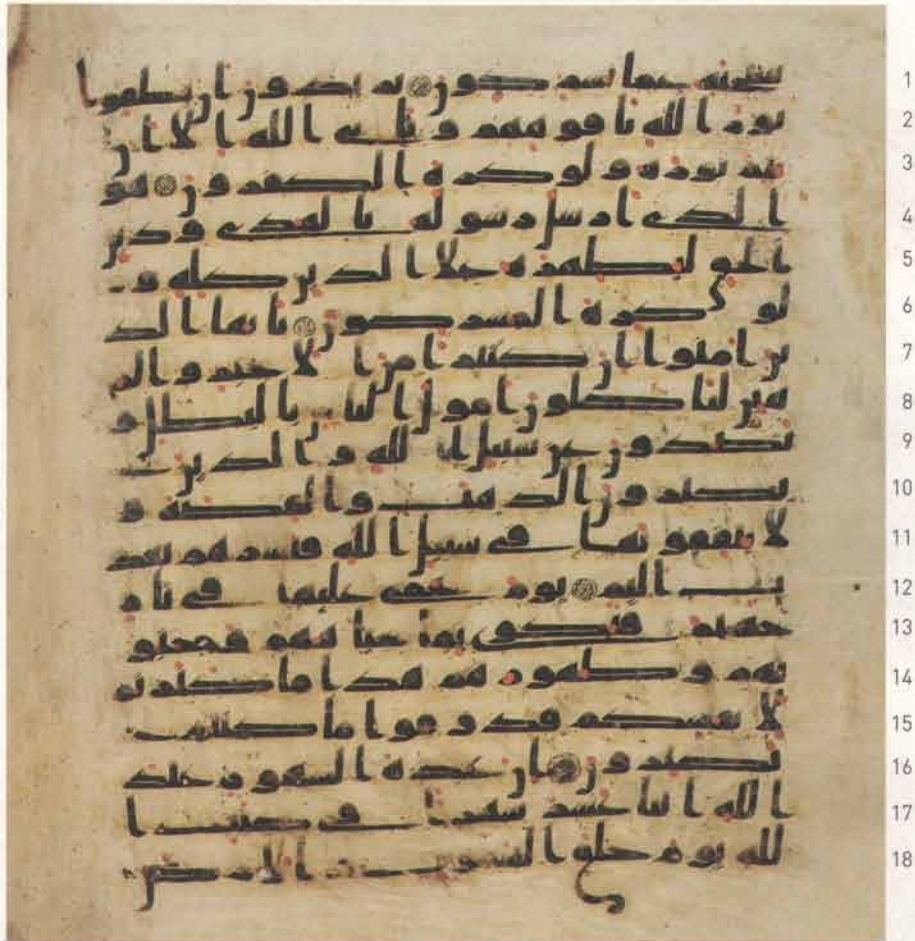 سبحنه عما يشركون يريدون ان يطفوا 1
نور الله بافوههم ويابى الله الا ان 2
يتم نوره ولو كره الكفرون هو 3
الذي ارسل رسوله بالهدى ودين 4
الحق ليظهره على الدين كله و 5
لو كره المشركون يايها الذ 6
ين امنوا ان كثيرا من الاحبر والر 7
هبن لياكلون امول الناس بالبطل و 8
يصدون عن سبيل الله والذين 9
يكنزون الذهب والفضة و 10
لا ينفقونها في سبيل الله فبشرهم بعذ 11
اب اليم يوم يحمى عليها في نار 12
جهنم فتكوى بها جباههم وجنو 13
بهم وظهورهم هذا ما كنزتم 14
لانفسكم فذوقوا ما كنتم 15
تكنزون ان عدة الشهور عند 16
الله اثنا عشر شهرا في كتب ا 17
لله يوم خلق السموت والارض 18